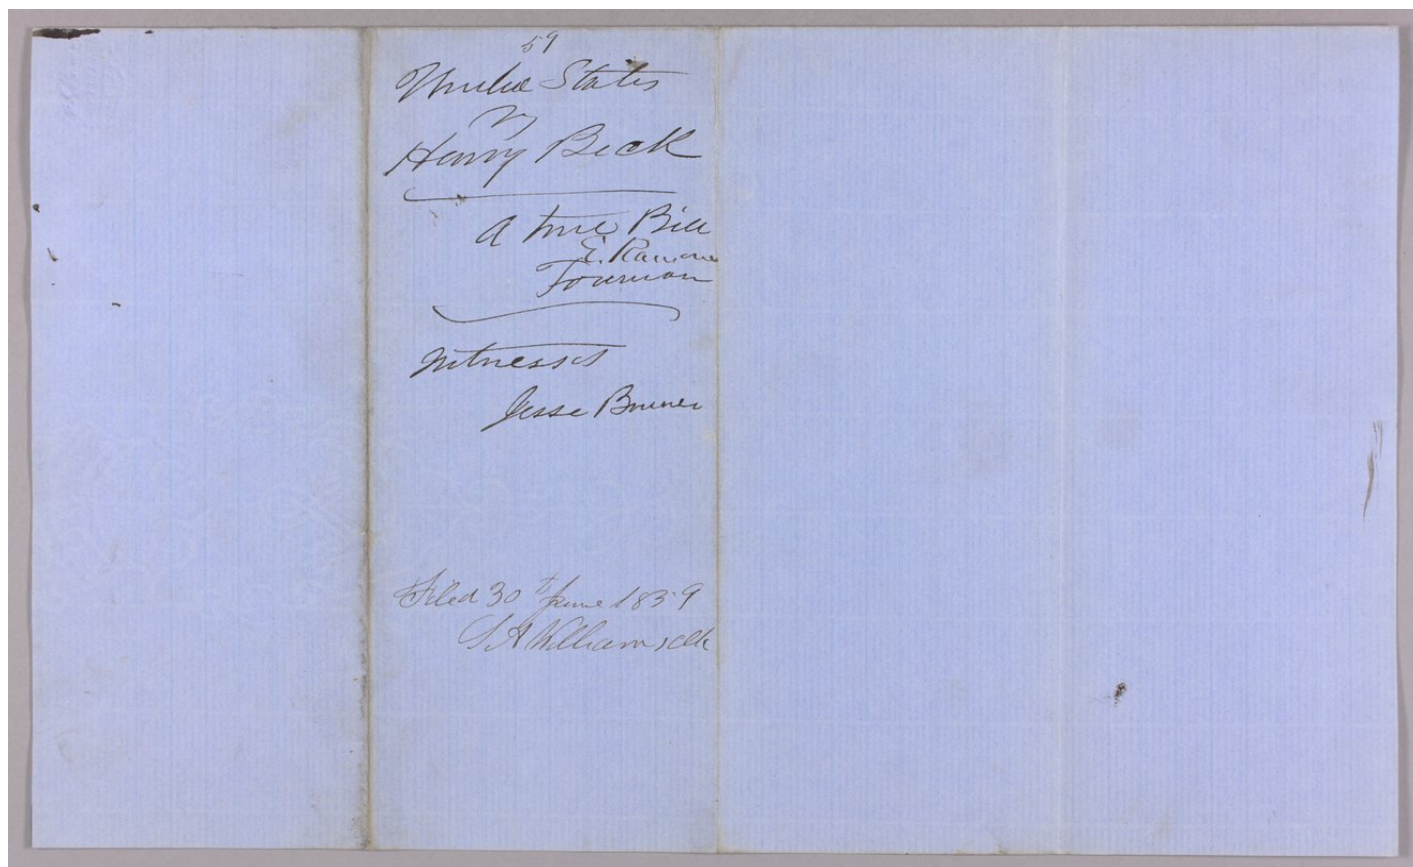 59
United States
vs
Henry Beck
A true Bill
E. Ramone
Foreman
Witnesses
Jesse Bruner
Filed 30th June 1859
S A Williams clk